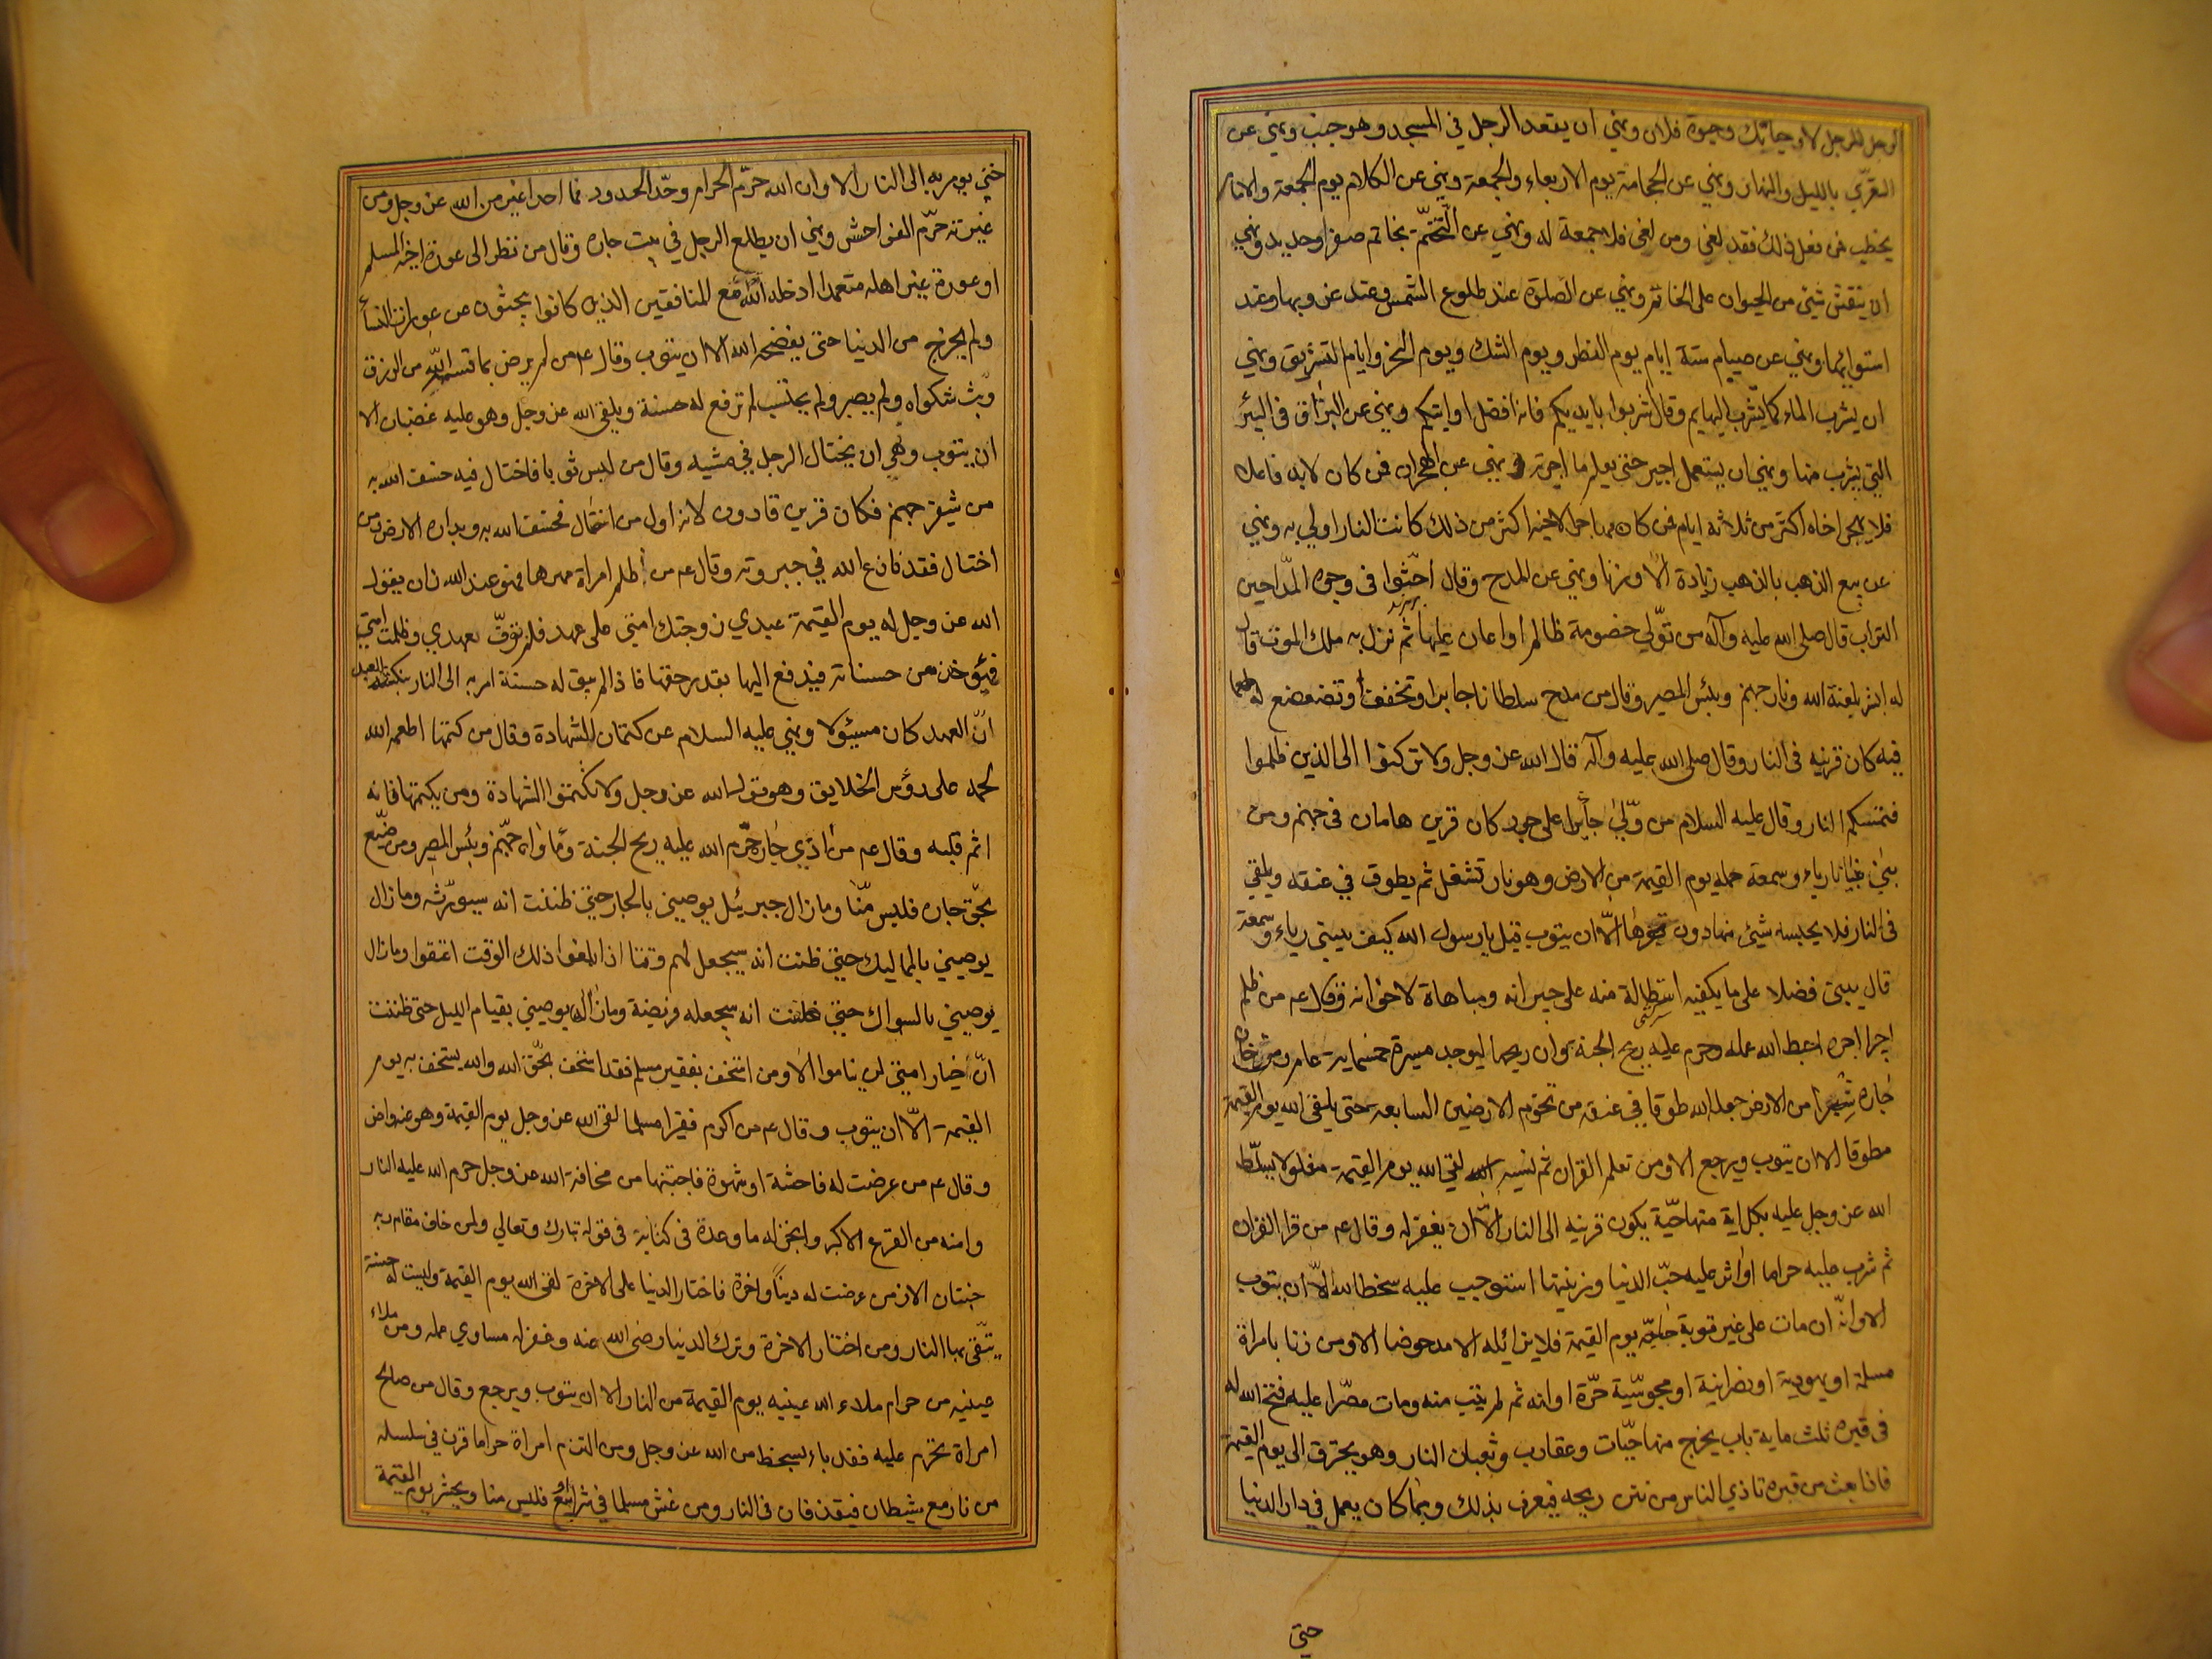 الرجل للرجل لا وحياتك وحيوة فلان ونهي ان يقعد الرجل في المسجد وهو جنب ونهي عن
التعري بالليل والنهار ونهي عن الحجامة يوم الاربعاء والجمعة ونهي عن الكلام يوم الجمعة والامام
يخطب فمن فعل ذلك فقد لغي ومن لغي فلا جمعة له ونهي عن التختّم بخاتم صفر او حديد ونهي
ان ينقش شيئ من الحيوان على الخاتم ونهي عن الصلوة عند طلوع الشمس وعند غروبها وعند
استوائها ونهي عن صيام ستة ايام يوم الفطر ويوم الشك ويوم النحر وايام التشريق ونهي
ان يشرب الماء كما يشرب البهايم وقال اشربوا بايديكم فانه افضل اوانيكم ونهي عن البزاق في البئر
التي يشرب منها ونهي ان يستعمل اجير حتى يعلم ما اجرته و نهي عن الهجران فمن كان لابد فاعلا
فلا يهجر اخاه اكثر من ثلاثة ايام فمن كان مهاجرا لاخيه اكثر من ذلك كانت النار اولي به ونهي
عن بيع الذهب بالذهب زيادة الّا وزنا ونهي عن المدح وقال احثوا في وجوه المدّاحين
التراب قال صلى الله عليه وآله من تولّي خصومة ظالم او اعان عليها ثم نزل به ملك الموت قال
له ابشر بلعنة الله ونار جهنم وبئس المصير وقال من مدح سلطانا جايرا وتخفف وتضعضع له طمعا
فيه كان قرينه في النار وقال صلى الله عليه وآله قال الله عز وجل ولا تركنوا الى الذين ظلموا
فتمسكم النار وقال عليه السلام من ولّي جائرا على جور كان قرين هامان في جهنم ومن
بني بنيانا رياء وسمعة حمله يوم القيمة من الارض وهو نار تشتعل ثم يطوق في عنقه ويلقي
في النار فلا يحبسه شيئ منها دون قعرها الّا ان يتوب قيل يا رسول الله كيف يبني رياء وسمعة
قال يبني فضلا على ما يكفيه استطالة منه على جيرانه ومباهاة لاخوانه وقال عم من ظلم
اجيرا اجره احبط الله عمله وحرم عليه ريح الجنة وان ريحها ليوجد مسيرة خمسماية عام ومن خان
جاره شبرا من الارض جعله الله طوقا في عنقه من تخوم الارضين السابعة حتى يلقى الله يوم القيمة
مطوقا الا ان يتوب ويرجع الا ومن تعلم القران ثم نسيه لقي الله يوم القيمة مغلولا يسلّط
الله عز وجل عليه بكل اية منها حيّة يكون قرينه الى النار الّا ان يغفر له وقال عم من قرا القران
ثم شرب عليه حراما او اثر عليه حبّ الدنيا وزينتها استوجب عليه سخط الله الّا ان يتوب
الا وانّه ان مات على غير توبة حاجّه يوم القيمة فلا يزائله الا مدحوضا الا ومن زنا بامراة
مسلمة او يهودية او نصرانية او مجوسّية حرّة او امة ثم لم يتب منه ومات مصّرا عليه فتح الله له
في قبره ثلث ماية باب يخرج منها حيّات وعقارب وثعبان النار وهو يحترق الى يوم القيمة
فاذا بعث من قبره تاذي الناس من نتن ريحه فيعرف بذلك وبما كان يعمل في دار الدنيا
حتي
حتي يومر به الى النار الا وان الله حرّم الحرام وحدّ الحدود فما احد اغير من الله عز وجل ومن
غيرته حرّم الفواحش ونهي ان يطلع الرجل في بيت جاره وقال من نظر الى عورة اخيه المسلم
او عورة غير اهله متعمدا ادخله الله مع المنافقين الذين كانوا يبحثون عن عورات النساء
ولم يخرج من الدنيا حتى يفضحه الله الا ان يتوب وقال عم من لم يرض بما قسم الله من الرزق
وبثّ شكواه ولم يصبر ولم يحتسب لم ترفع له حسنة ويلقى الله عز وجل وهو عليه غضبان الا
ان يتوب ونهي ان يختال الرجل في مشيه وقال من لبس ثوبا فاختال فيه خسف الله به
من شفير جهنم فكان قرين قارون لانه اول من اختال فخسف الله به وبداره الارض ومن
اختال فقد نازع الله في جبروته وقال عم من ظلم امراة مهرها فهو عند الله زان يقول
الله عز وجل له يوم القيمة عبدي زوجتك امتي على عهد فلم توفّ بعهدي وظلمت امتي
فيؤخذ من حسناته فيدفع اليها بقدر حقها فاذا لم يبق له حسنة امر به الى النار بنكثه العهد
انّ العهد كان مسئولا ونهي عليه السلام عن كتمان الشهادة وقال من كتمها اطعمه الله
لحمه على رؤس الخلايق وهو قول الله عز وجل ولا تكتموا الشهادة ومن يكتمها فانه
اثم قلبه وقال عم من اذي جاره حرّم الله عليه ريح الجنة ومأواه جهنم وبئس المصير ومن ضيّع
بحّق جاره فليس منّا وما زال جبرئيل يوصيني بالجار حتي ظننت انه سيورّثه وما زال
يوصيني بالمماليك حتي ظننت انه سيجعل لهم وقتا اذا بلغوا ذلك الوقت اعتقوا وما زال
يوصيني بالسواك حتي ظننت انه سيجعله فريضة وما زال يوصيني بقيام الليل حتى ظننت
انّ خيار امتي لن يناموا الا ومن استخف بفقير مسلم فقد استخف بحّق الله والله يستخف به يوم
القيمة الّا ان يتوب وقال عم من اكرم فقيرا مسلما لقي الله عز وجل يوم القيمة وهو عنه راض
وقال عم من عرضت له فاحشة او شهوة فاجتنبها من مخافة الله عز وجل حرم الله عليه النار
وامنه من الفزع الاكبر وانجز له ما وعده في كتابه في قوله تبارك وتعالي ولمن خاف مقام ربه
جنتان الا ومن عرضت له دينا واخرة فاختار الدنيا على الاخرة لقى الله يوم القيمة وليست له حسنة
يتّقي بها النار ومن اختار الاخرة وترك الدنيا رضى الله عنه وغفر له مساوي عمله ومن ملاء
عينيه من حرام ملاء الله عينيه يوم القيمة من النار الا ان يتوب ويرجع وقال من صافح
امراة تحرم عليه فقد باء بسخط من الله عز وجل ومن التزم امراة حراما قرن في سلسلة
من نار مع شيطان فيقذفان في النار ومن غش مسلما في شراء او بيع فليس منا ويحشر يوم القيمة